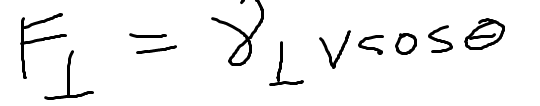 F⊥ = γ⊥ v cos θ